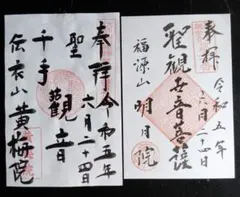 奉拝
令和五年
六月二十四日
聖
千手観音
伝衣山
黄梅院
奉拝
令和五年
六月二十四日
聖観世音菩薩
福源山
明月院